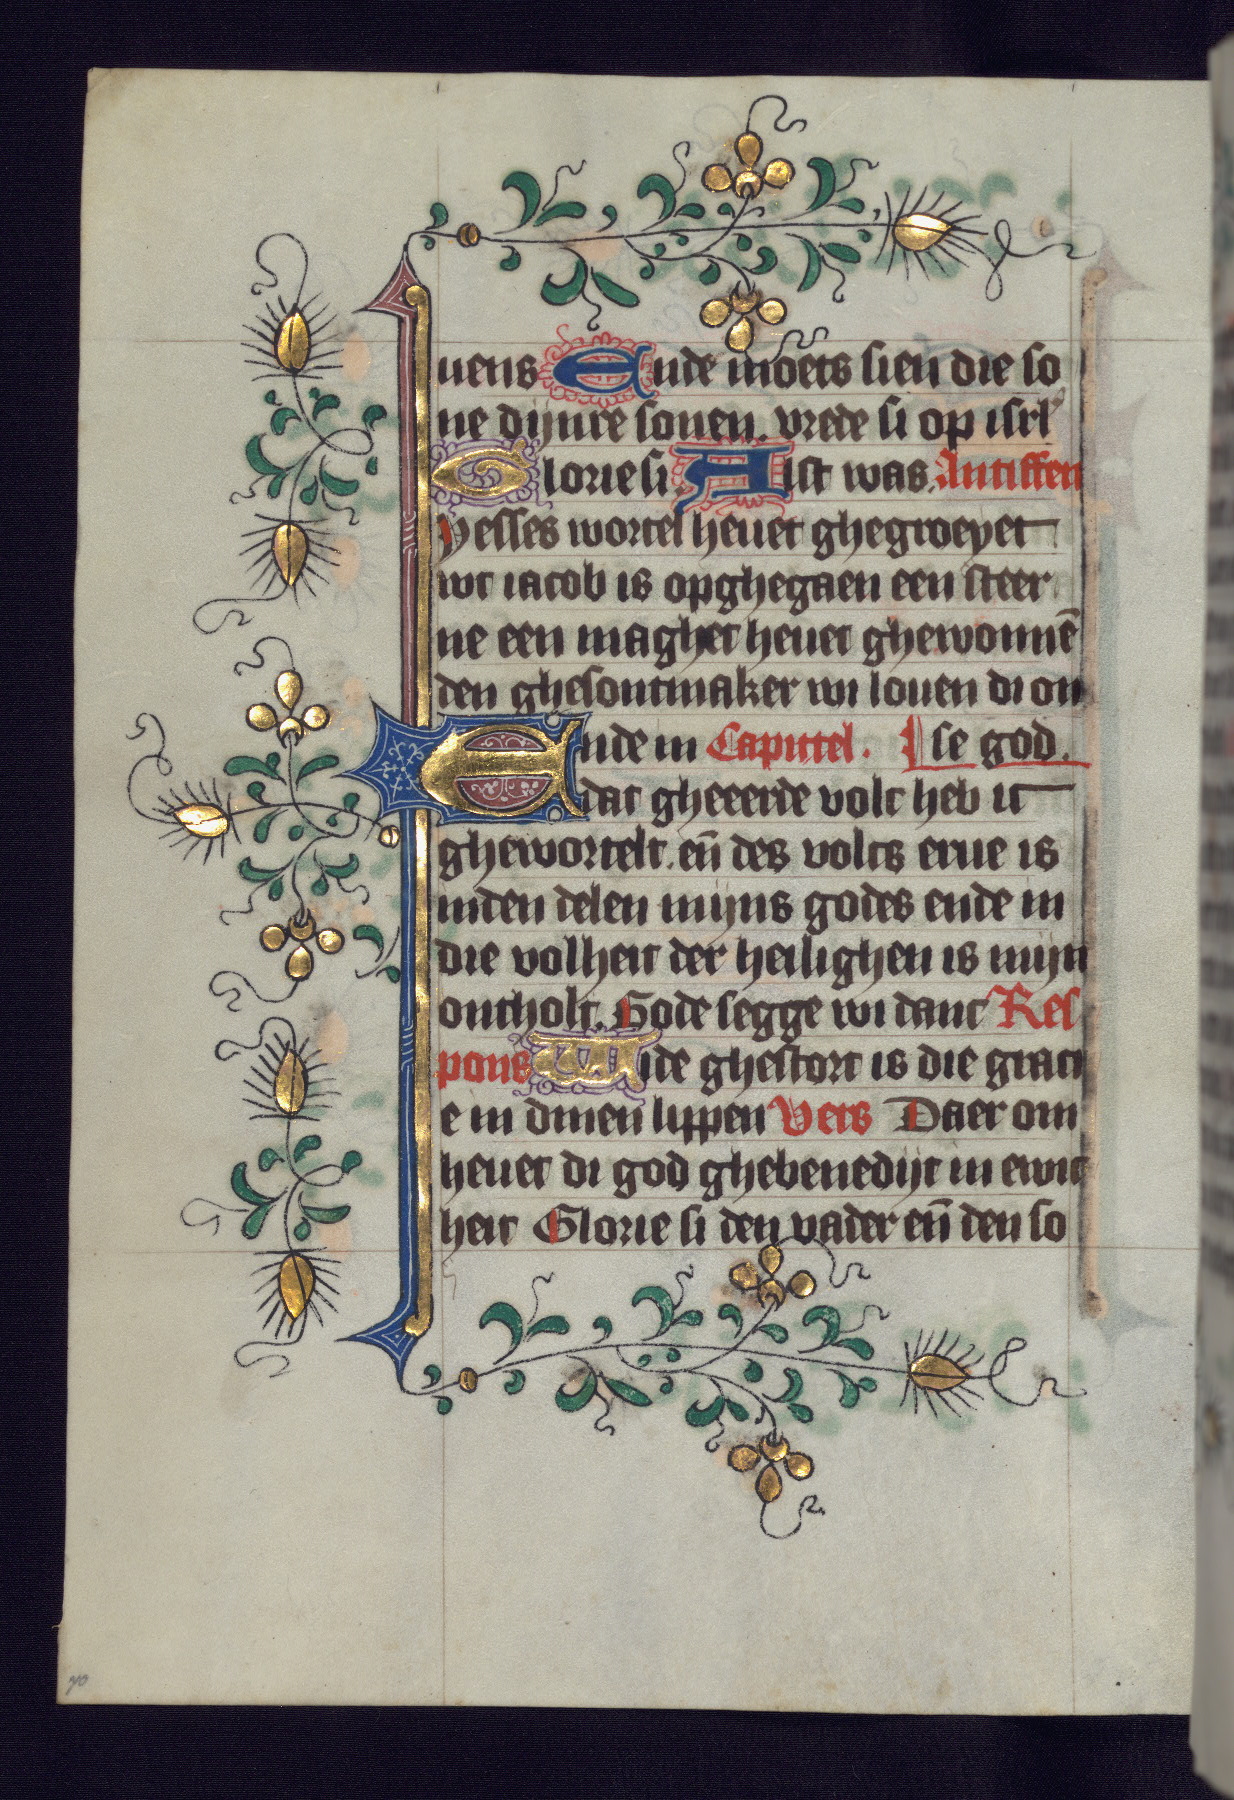 uens Ende moets sien die so
ne dijnre sonen. vrede si op isrl'
Glorie si. Alst was. Antiffen
Yesses wortel heuet ghegroeyet
wt iacob is opghegaen een steer
ne een maghet heuet ghewonnē
den ghesontmaker wi louen di on
Ende in Capittel. se god.
dat gheeerde volc heb ic
ghewortelt. en̄ des volcs erue is
inden delen mijns godes ende in
die volheit der heilighen is mijn
ontholt. Gode segge wi danc Res
pons Wtde ghestort is die graci
e in dinen lippen Vers Daer om
heuet di god ghebenedijt in ewic
heit Glorie si den vader en̄ den so
70